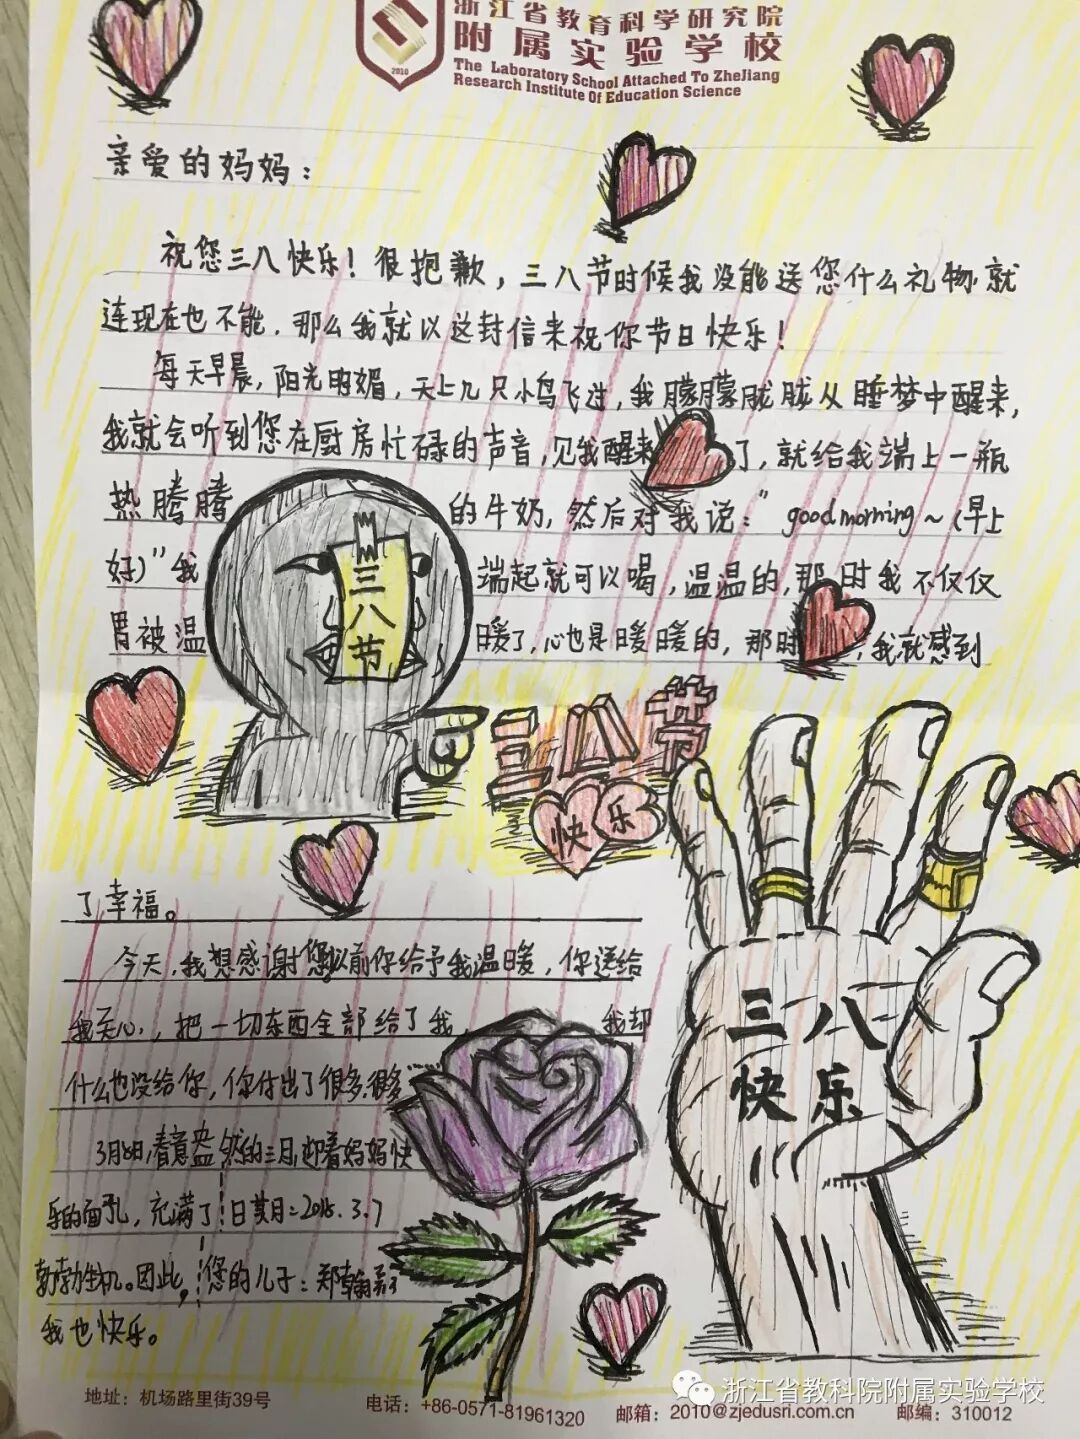 浙江省教育科学研究院
附属实验学校
The Laboratory School Attached To ZheJiang
Research Institute Of Education Science
2010
亲爱的妈妈：
祝您三八快乐！很抱歉，三八节时候我没能送您什么礼物.就
连现在也不能.那么我就以这封信来祝你节日快乐！
每天早晨，阳光明媚，天上几只小鸟飞过，我朦朦胧胧从睡梦中醒来，
我就会听到您在厨房忙碌的声音，见我醒来了，就给我端上一瓶
热腾腾的牛奶，然后对我说：“good morning～（早上
好）”我端起就可以喝，温温的，那时我不仅仅
胃被温暖了，心也是暖暖的，那时，我就感到
三八节
三八节
快乐
了幸福。
今天，我想感谢您以前你给予我温暖，你送给
我关心，把一切东西全部给了我，我却
什么也没给你，你付出了很多.很多……
3月8日，春意盎然的三日，迎着妈妈快
乐的面孔，充满了
勃勃生机。因此，
我也快乐。
日期：2018.3.7
您的儿子：郑翰
三八
快乐
地址：机场路里街39号
电话：+86-0571-81961320
邮箱：2010@zjedusri.com.cn
邮编：310012
浙江省教科院附属实验学校